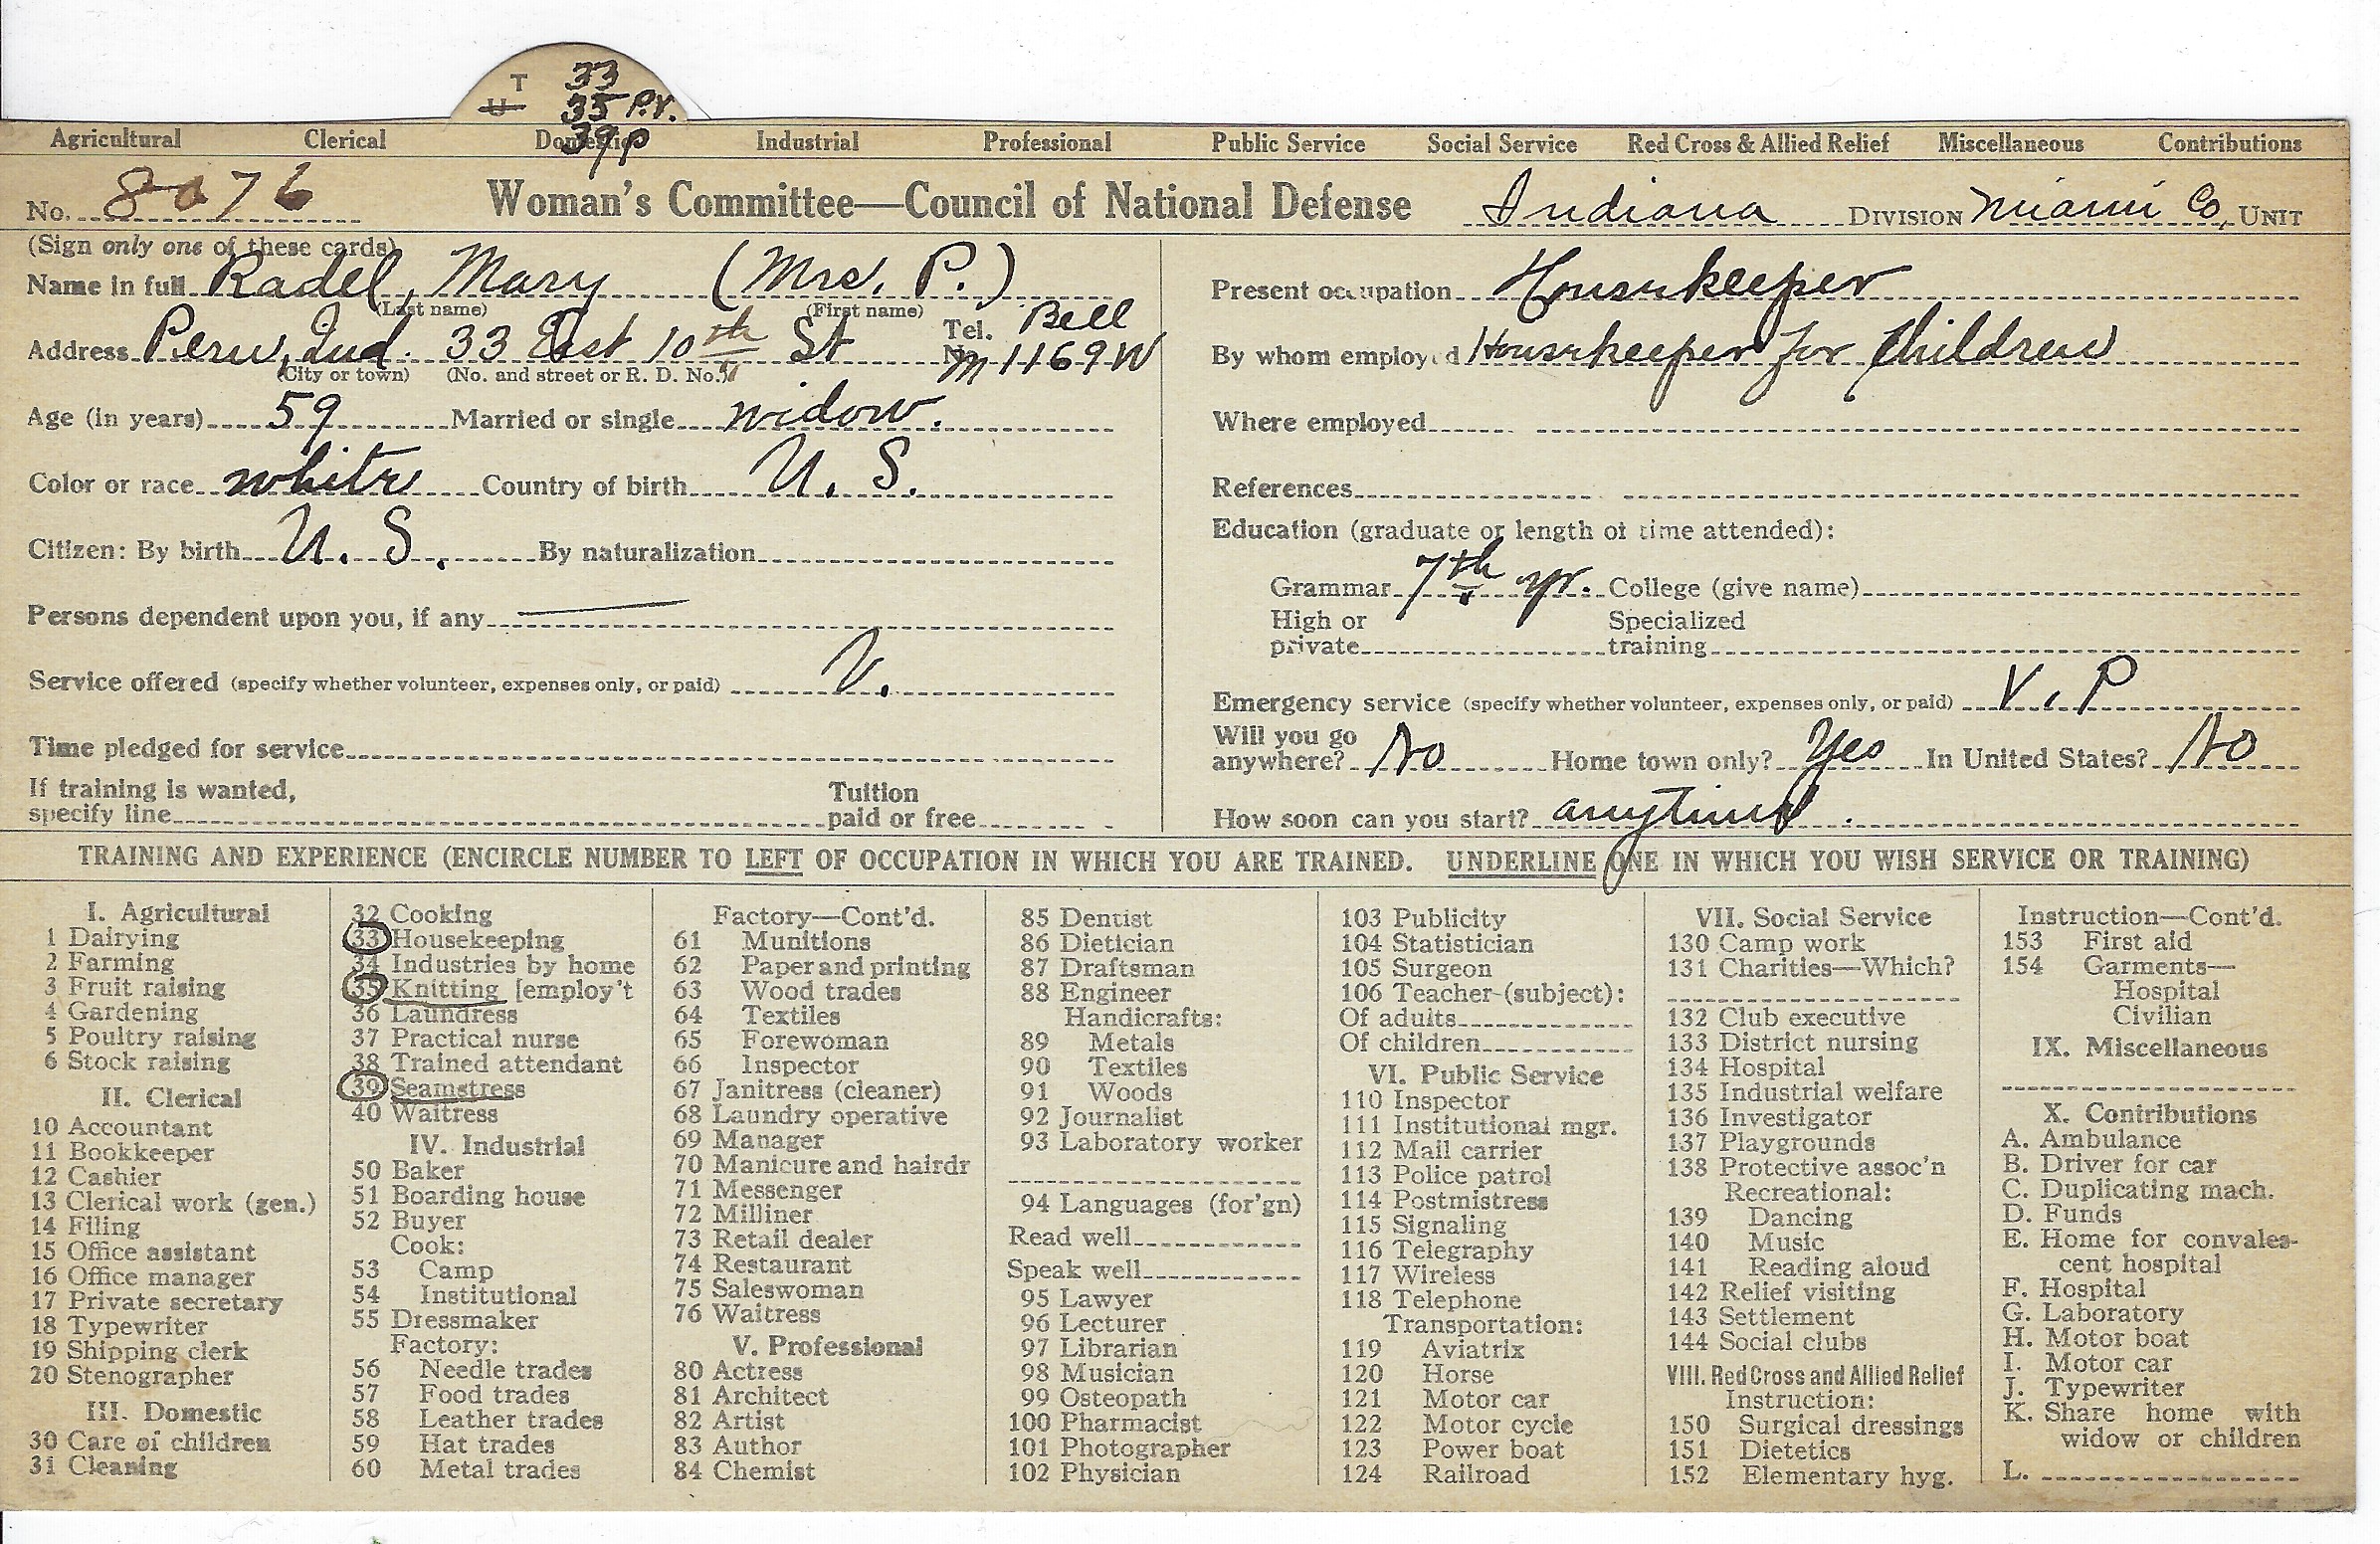 T 33
U 35 P.V.
39 P
Agricultural Clerical Domestic Industrial Professional Public Service Social Service Red Cross & Allied Relief Miscellaneous Contributions
No. 8076 Woman's Committee—Council of National Defense Indiana DIVISION Miami Co. UNIT
(Sign only one of these cards)
Name in full Radel, Mary (Mrs. P.)
(Last name) (First name)
Address Peru, Ind. 33 East 10th St Tel. No. Bell M 1169W
(City or town) (No. and street or R. D. No.)
Age (in years) 59 Married or single widow.
Color or race white Country of birth U. S.
Citizen: By birth U. S. By naturalization
Persons dependent upon you, if any —
Service offered (specify whether volunteer, expenses only, or paid) V.
Time pledged for service
If training is wanted, Tuition
specify line paid or free
Present occupation Housekeeper
By whom employed Housekeeper for Children
Where employed
References
Education (graduate or length of time attended):
Grammar 7th yr. College (give name)
High or Specialized
private training
Emergency service (specify whether volunteer, expenses only, or paid) V. P
Will you go
anywhere? No Home town only? Yes In United States? No
How soon can you start? anytime.
TRAINING AND EXPERIENCE (ENCIRCLE NUMBER TO LEFT OF OCCUPATION IN WHICH YOU ARE TRAINED. UNDERLINE ONE IN WHICH YOU WISH SERVICE OR TRAINING)
I. Agricultural
1 Dairying
2 Farming
3 Fruit raising
4 Gardening
5 Poultry raising
6 Stock raising
II. Clerical
10 Accountant
11 Bookkeeper
12 Cashier
13 Clerical work (gen.)
14 Filing
15 Office assistant
16 Office manager
17 Private secretary
18 Typewriter
19 Shipping clerk
20 Stenographer
III. Domestic
30 Care of children
31 Cleaning
32 Cooking
33 Housekeeping
34 Industries by home
35 Knitting [employ't
36 Laundress
37 Practical nurse
38 Trained attendant
39 Seamstress
40 Waitress
IV. Industrial
50 Baker
51 Boarding house
52 Buyer
Cook:
53 Camp
54 Institutional
55 Dressmaker
Factory:
56 Needle trades
57 Food trades
58 Leather trades
59 Hat trades
60 Metal trades
Factory—Cont'd.
61 Munitions
62 Paper and printing
63 Wood trades
64 Textiles
65 Forewoman
66 Inspector
67 Janitress (cleaner)
68 Laundry operative
69 Manager
70 Manicure and hairdr
71 Messenger
72 Milliner
73 Retail dealer
74 Restaurant
75 Saleswoman
76 Waitress
V. Professional
80 Actress
81 Architect
82 Artist
83 Author
84 Chemist
85 Dentist
86 Dietician
87 Draftsman
88 Engineer
Handicrafts:
89 Metals
90 Textiles
91 Woods
92 Journalist
93 Laboratory worker
94 Languages (for'gn)
Read well
Speak well
95 Lawyer
96 Lecturer
97 Librarian
98 Musician
99 Osteopath
100 Pharmacist
101 Photographer
102 Physician
103 Publicity
104 Statistician
105 Surgeon
106 Teacher-(subject):
Of adults
Of children
VI. Public Service
110 Inspector
111 Institutional mgr.
112 Mail carrier
113 Police patrol
114 Postmistress
115 Signaling
116 Telegraphy
117 Wireless
118 Telephone
Transportation:
119 Aviatrix
120 Horse
121 Motor car
122 Motor cycle
123 Power boat
124 Railroad
VII. Social Service
130 Camp work
131 Charities—Which?
132 Club executive
133 District nursing
134 Hospital
135 Industrial welfare
136 Investigator
137 Playgrounds
138 Protective assoc'n
Recreational:
139 Dancing
140 Music
141 Reading aloud
142 Relief visiting
143 Settlement
144 Social clubs
VIII. Red Cross and Allied Relief
Instruction:
150 Surgical dressings
151 Dietetics
152 Elementary hyg.
Instruction—Cont'd.
153 First aid
154 Garments—
Hospital
Civilian
IX. Miscellaneous
X. Contributions
A. Ambulance
B. Driver for car
C. Duplicating mach.
D. Funds
E. Home for convales-
cent hospital
F. Hospital
G. Laboratory
H. Motor boat
I. Motor car
J. Typewriter
K. Share home with
widow or children
L.